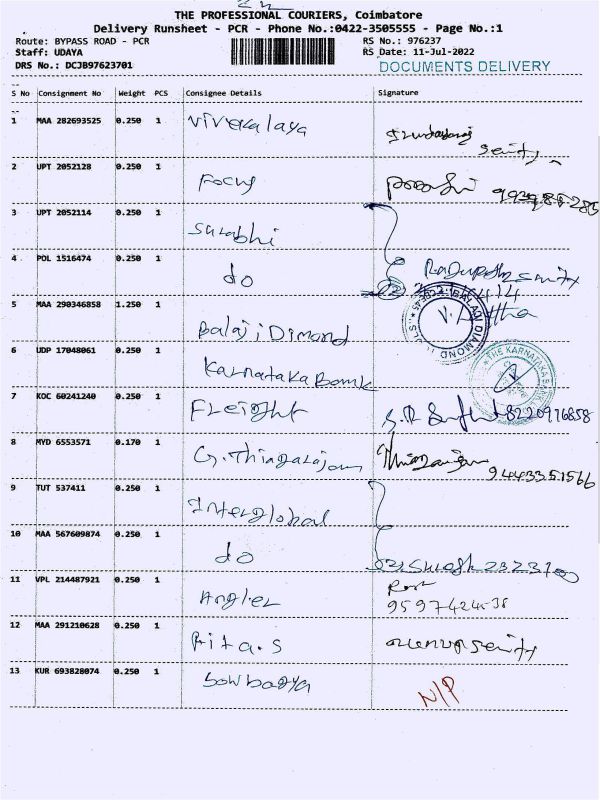 THE PROFESSIONAL COURIERS, Coimbatore
Delivery Runsheet - PCR - Phone No.:0422-3505555 - Page No.:1
Route: BYPASS ROAD - PCR RS No.: 976237
Staff: UDAYA RS Date: 11-Jul-2022
DRS No.: DCJB97623701 DOCUMENTS DELIVERY
S No Consignment No Weight PCS Consignee Details Signature
1 MAA 282693525 0.250 1 Vivekalaya
security
2 UPT 2052128 0.250 1 Focus
3 UPT 2052114 0.250 1 Surabhi
4 POL 1516474 0.250 1 do
5 MAA 290346858 1.250 1 Balaji Dimond
6 UDP 17048061 0.250 1 Karnataka Bank THE KARNATAKA BANK
7 KOC 60241240 0.250 1 Freight 8220976858
8 MYD 6553571 0.170 1 G. Thiagarajan
9443351566
9 TUT 537411 0.250 1 Interglobal
10 MAA 567609874 0.250 1 do Suresh 2323700
11 VPL 214487921 0.250 1 Angler
12 MAA 291210628 0.250 1 Rita.S security
13 KUR 693828074 0.250 1 Sowbagya N/P